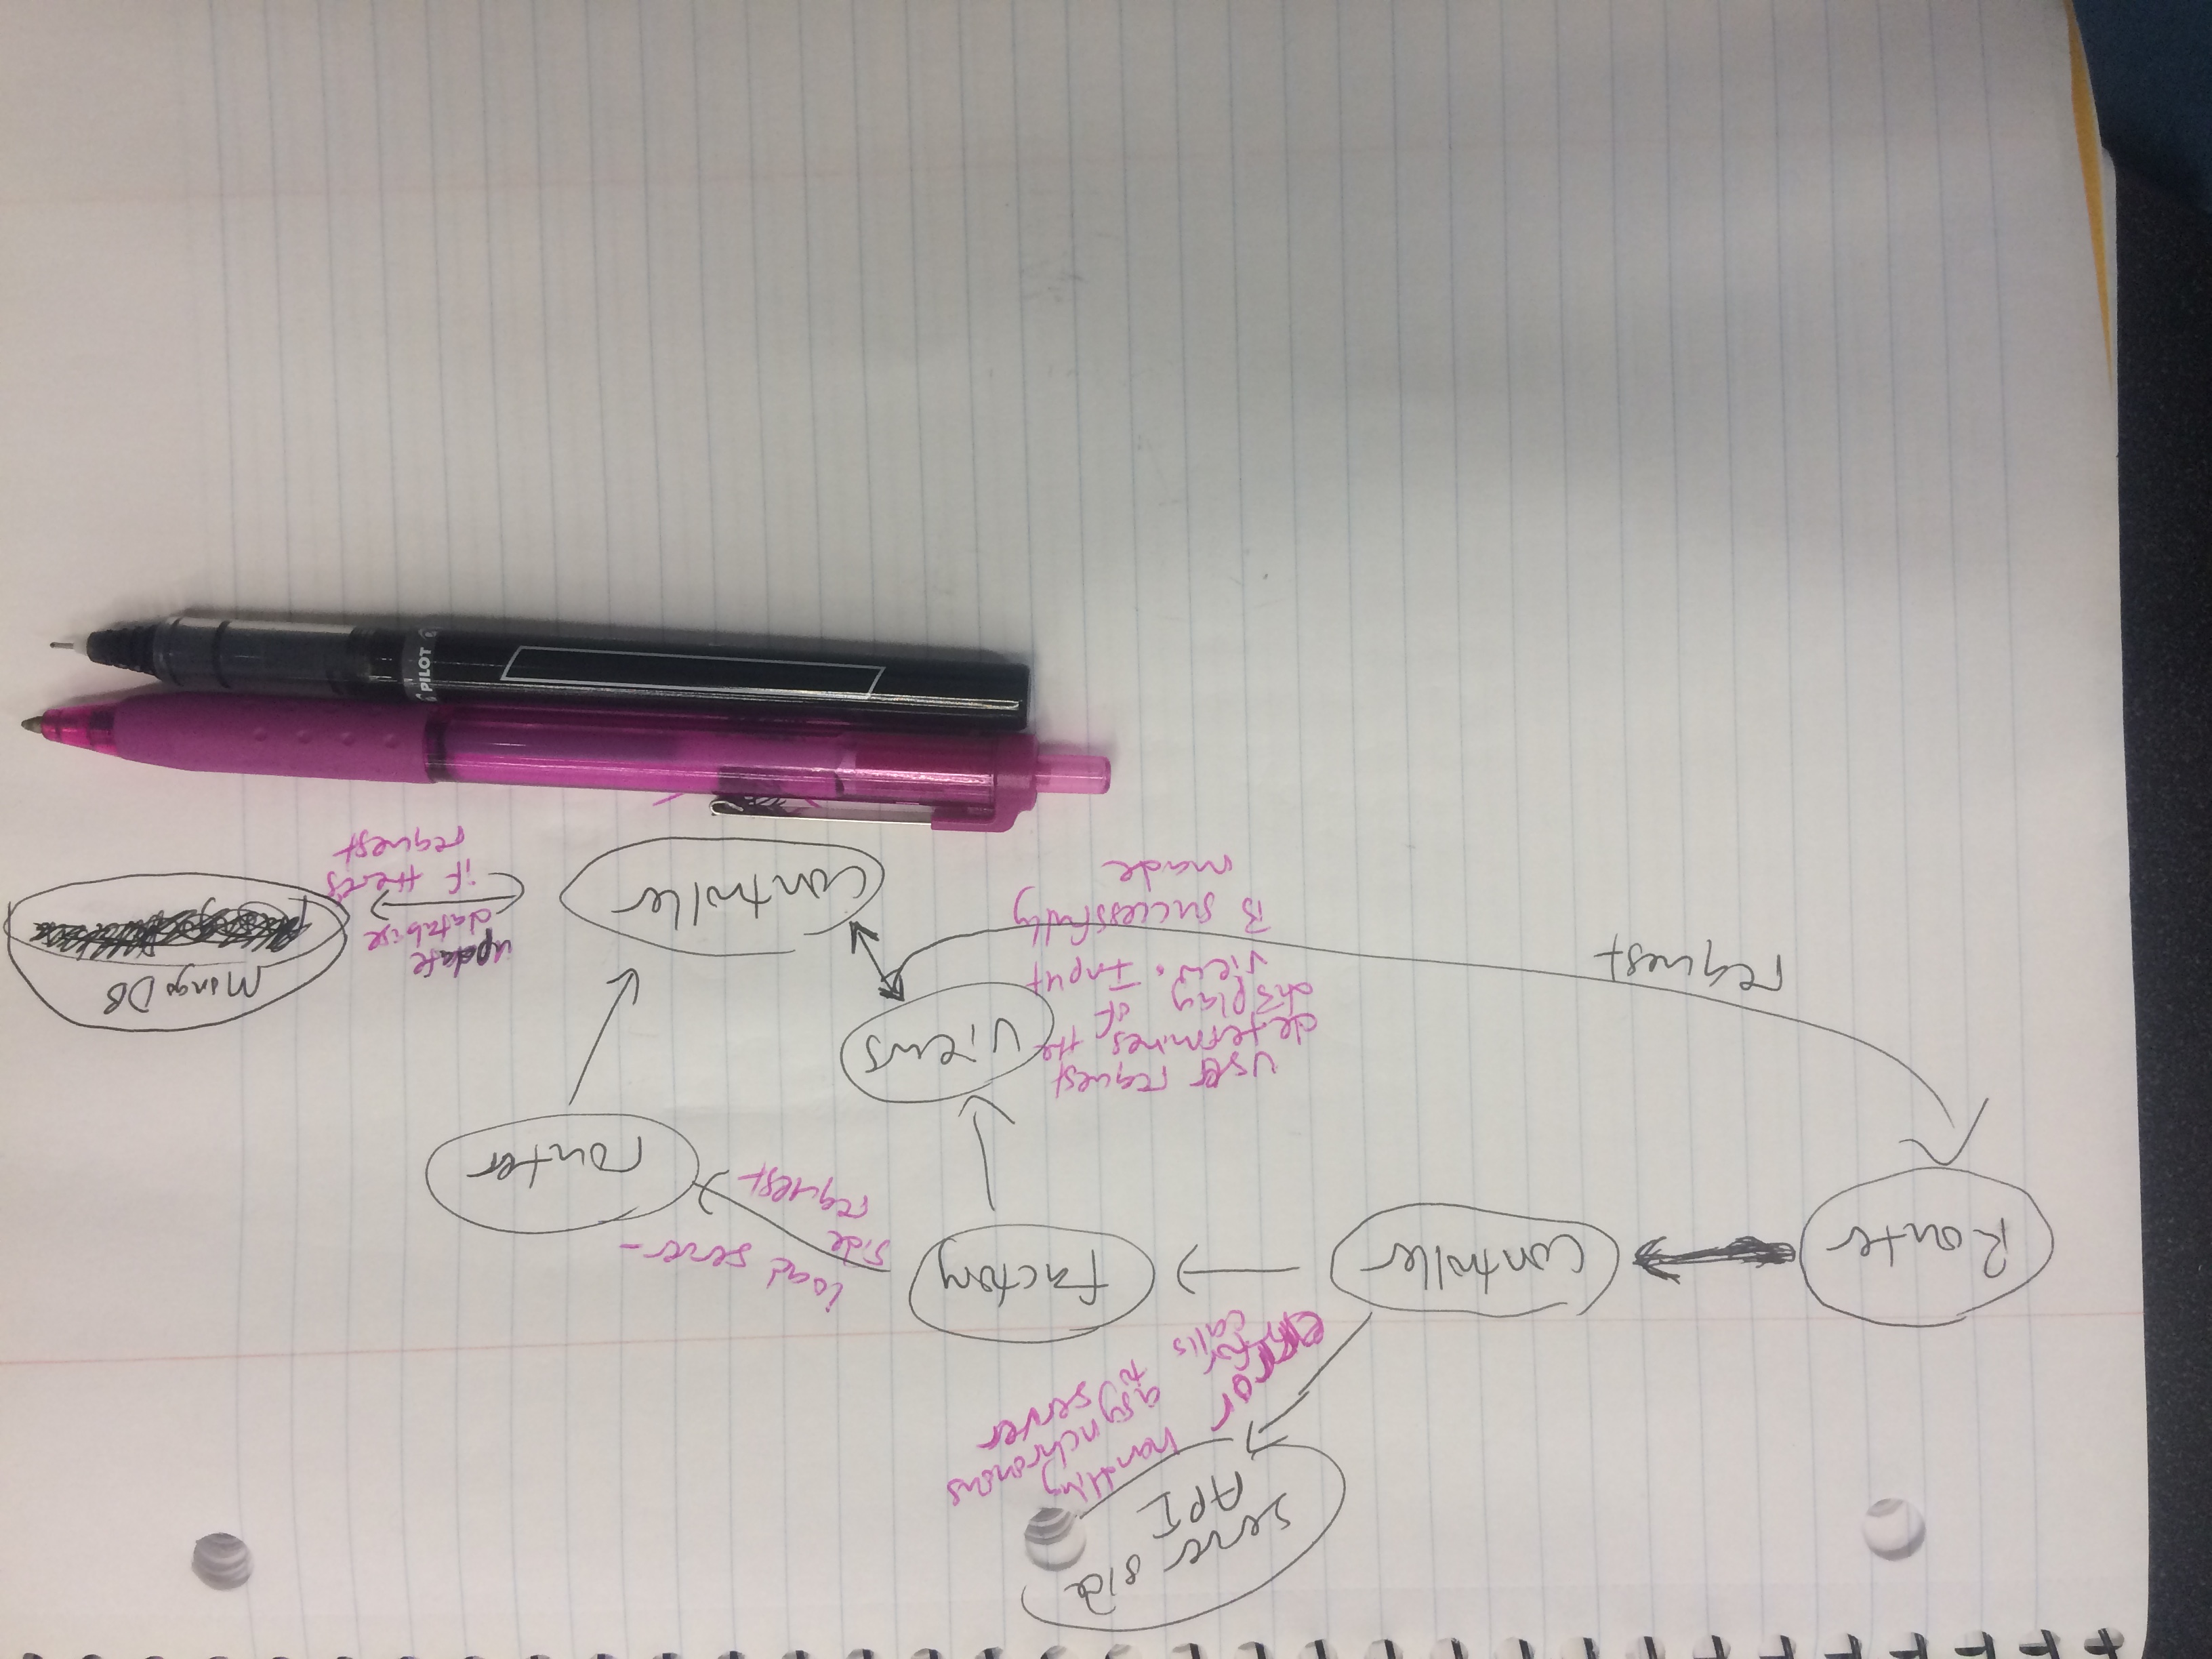 server side
API
error handling
for asynchronous
calls to server
Router
controller
factory
load server-
side
request
router
views
user request
determines the
display of
view. Input
is successfully
made
request
controller
update
database
if there's
request
MongoDB
PILOT